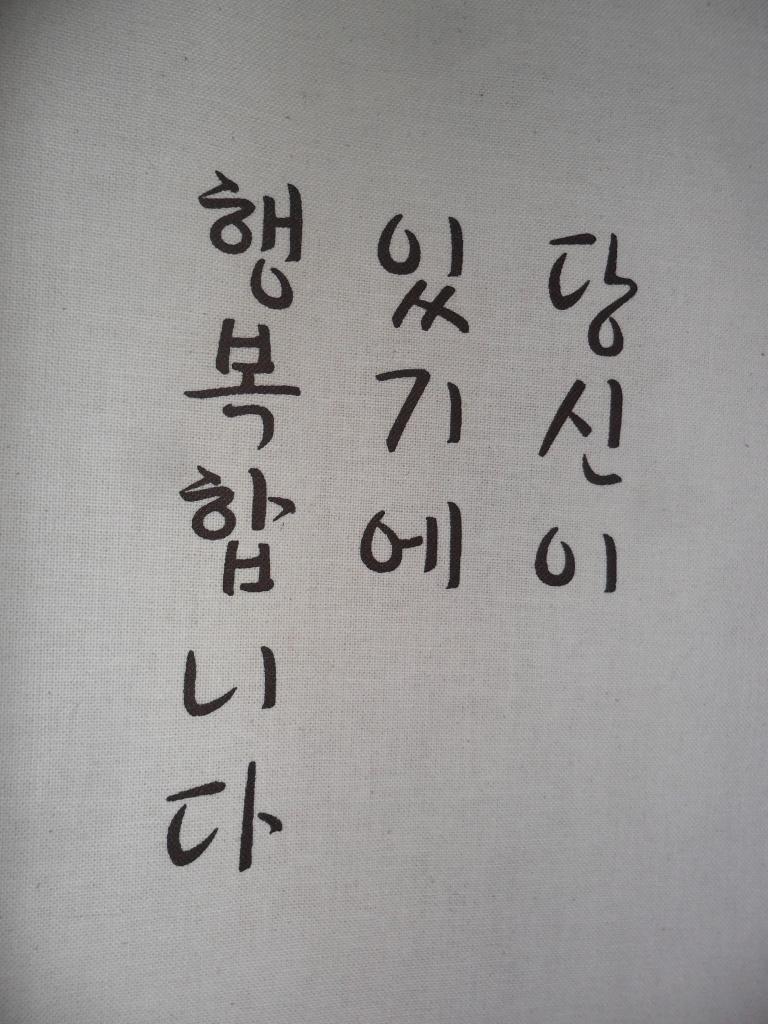 당신이
있기에
행복합니다